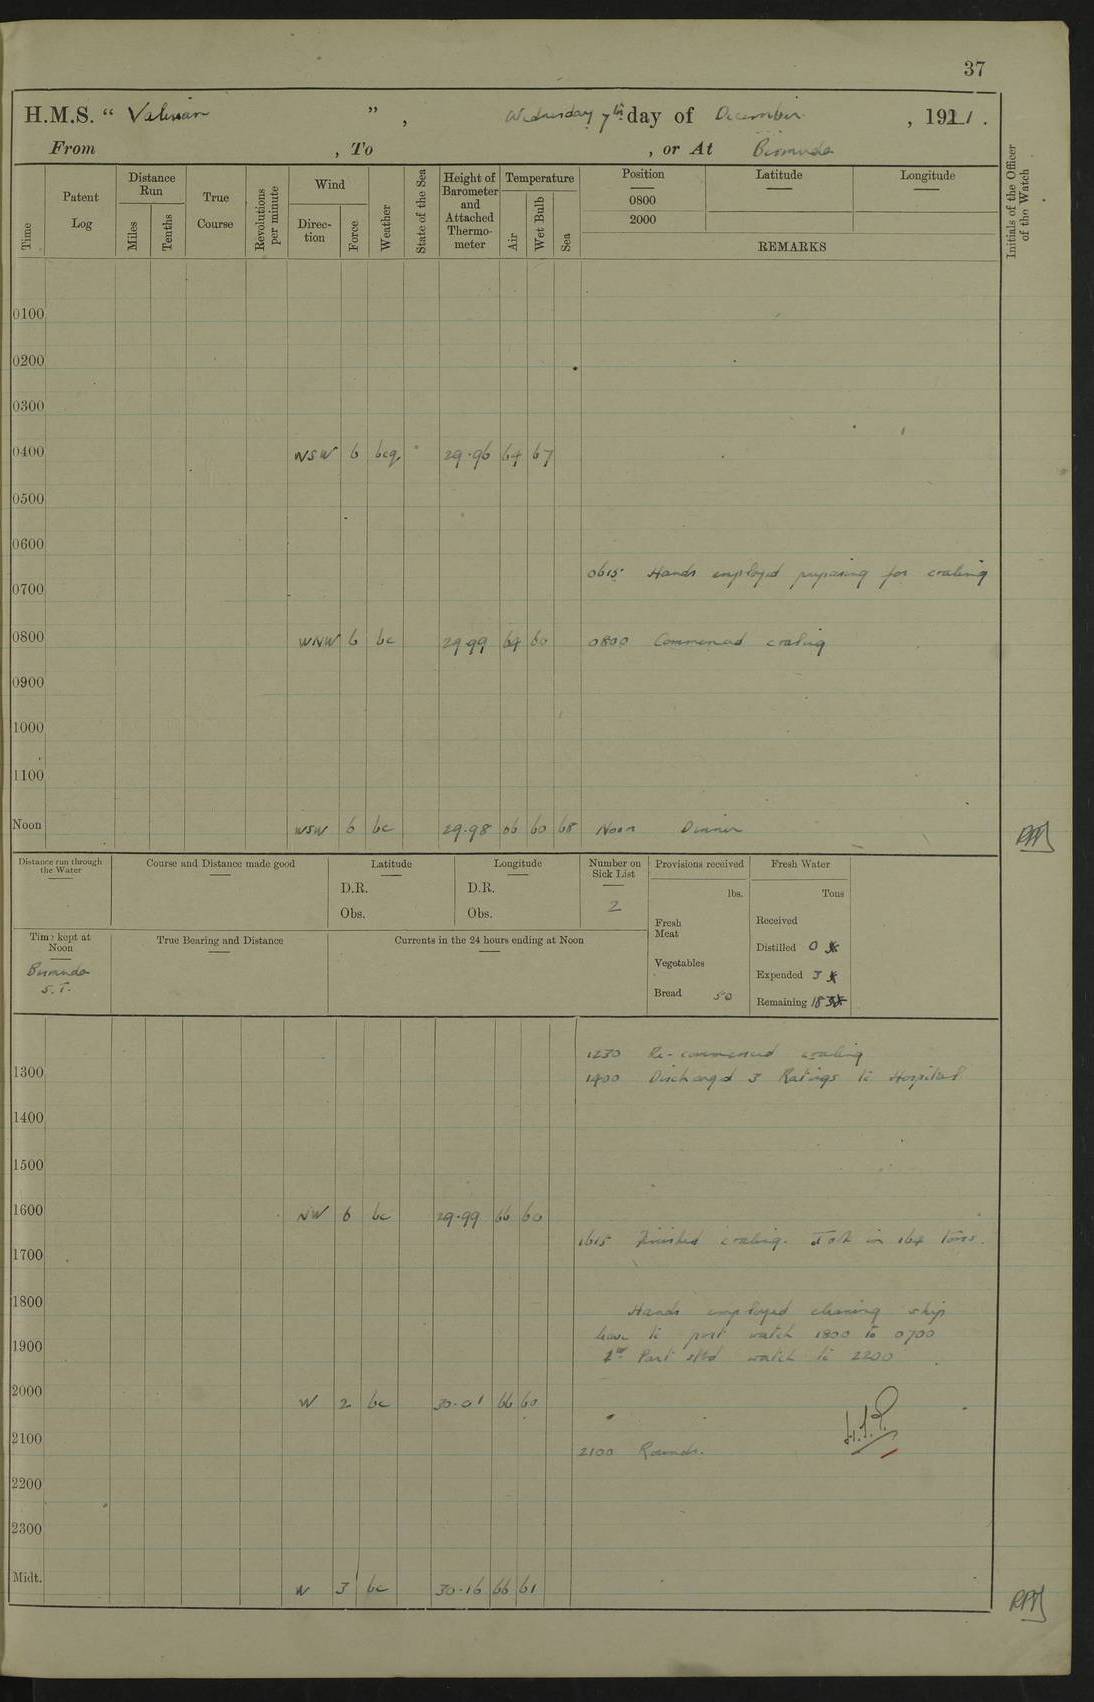 37
H.M.S. “ Valerian ” , Wednesday 7th day of December , 1921 .
From , To , or At Bermuda
Time
Patent Log
Distance Run
Miles
Tenths
True Course
Revolutions per minute
Wind
Direc- tion
Force
Weather
State of the Sea
Height of Barometer and Attached Thermo- meter
Temperature
Air
Wet Bulb
Sea
Position
0800
2000
Latitude
Longitude
REMARKS
Initials of the Officer of the Watch
0100
0200
0300
0400 WSW 6 bcq. 29.96 64 67
0500
0600
0615 Hands employed preparing for coaling
0700
0800 WNW 6 bc 29.99 64 60 0800 Commenced coaling
0900
1000
1100
Noon WSW 6 bc 29.98 66 60 68 Noon Dinner
Distance run through the Water
Course and Distance made good
Latitude
D.R.
Obs.
Longitude
D.R.
Obs.
Number on Sick List
2
Provisions received
lbs.
Fresh Meat
Vegetables
Bread 50
Fresh Water
Tons
Received
Distilled 0
Expended 3
Remaining 183
Time kept at Noon
Bermuda S.T.
True Bearing and Distance
Currents in the 24 hours ending at Noon
1230 Re-commenced coaling
1300
1400 Discharged 3 Ratings to Hospital.
1400
1500
1600 NW 6 bc 29.99 66 60
1615 Finished coaling. Took in 164 tons.
1700
1800
Hands employed cleaning ship
leave to port watch 1800 to 0700
1st Part stbd watch to 2200
1900
2000 W 2 bc 30.01 66 60
2100
2100 Rounds.
2200
2300
Midt. W 3 bc 30.16 66 61